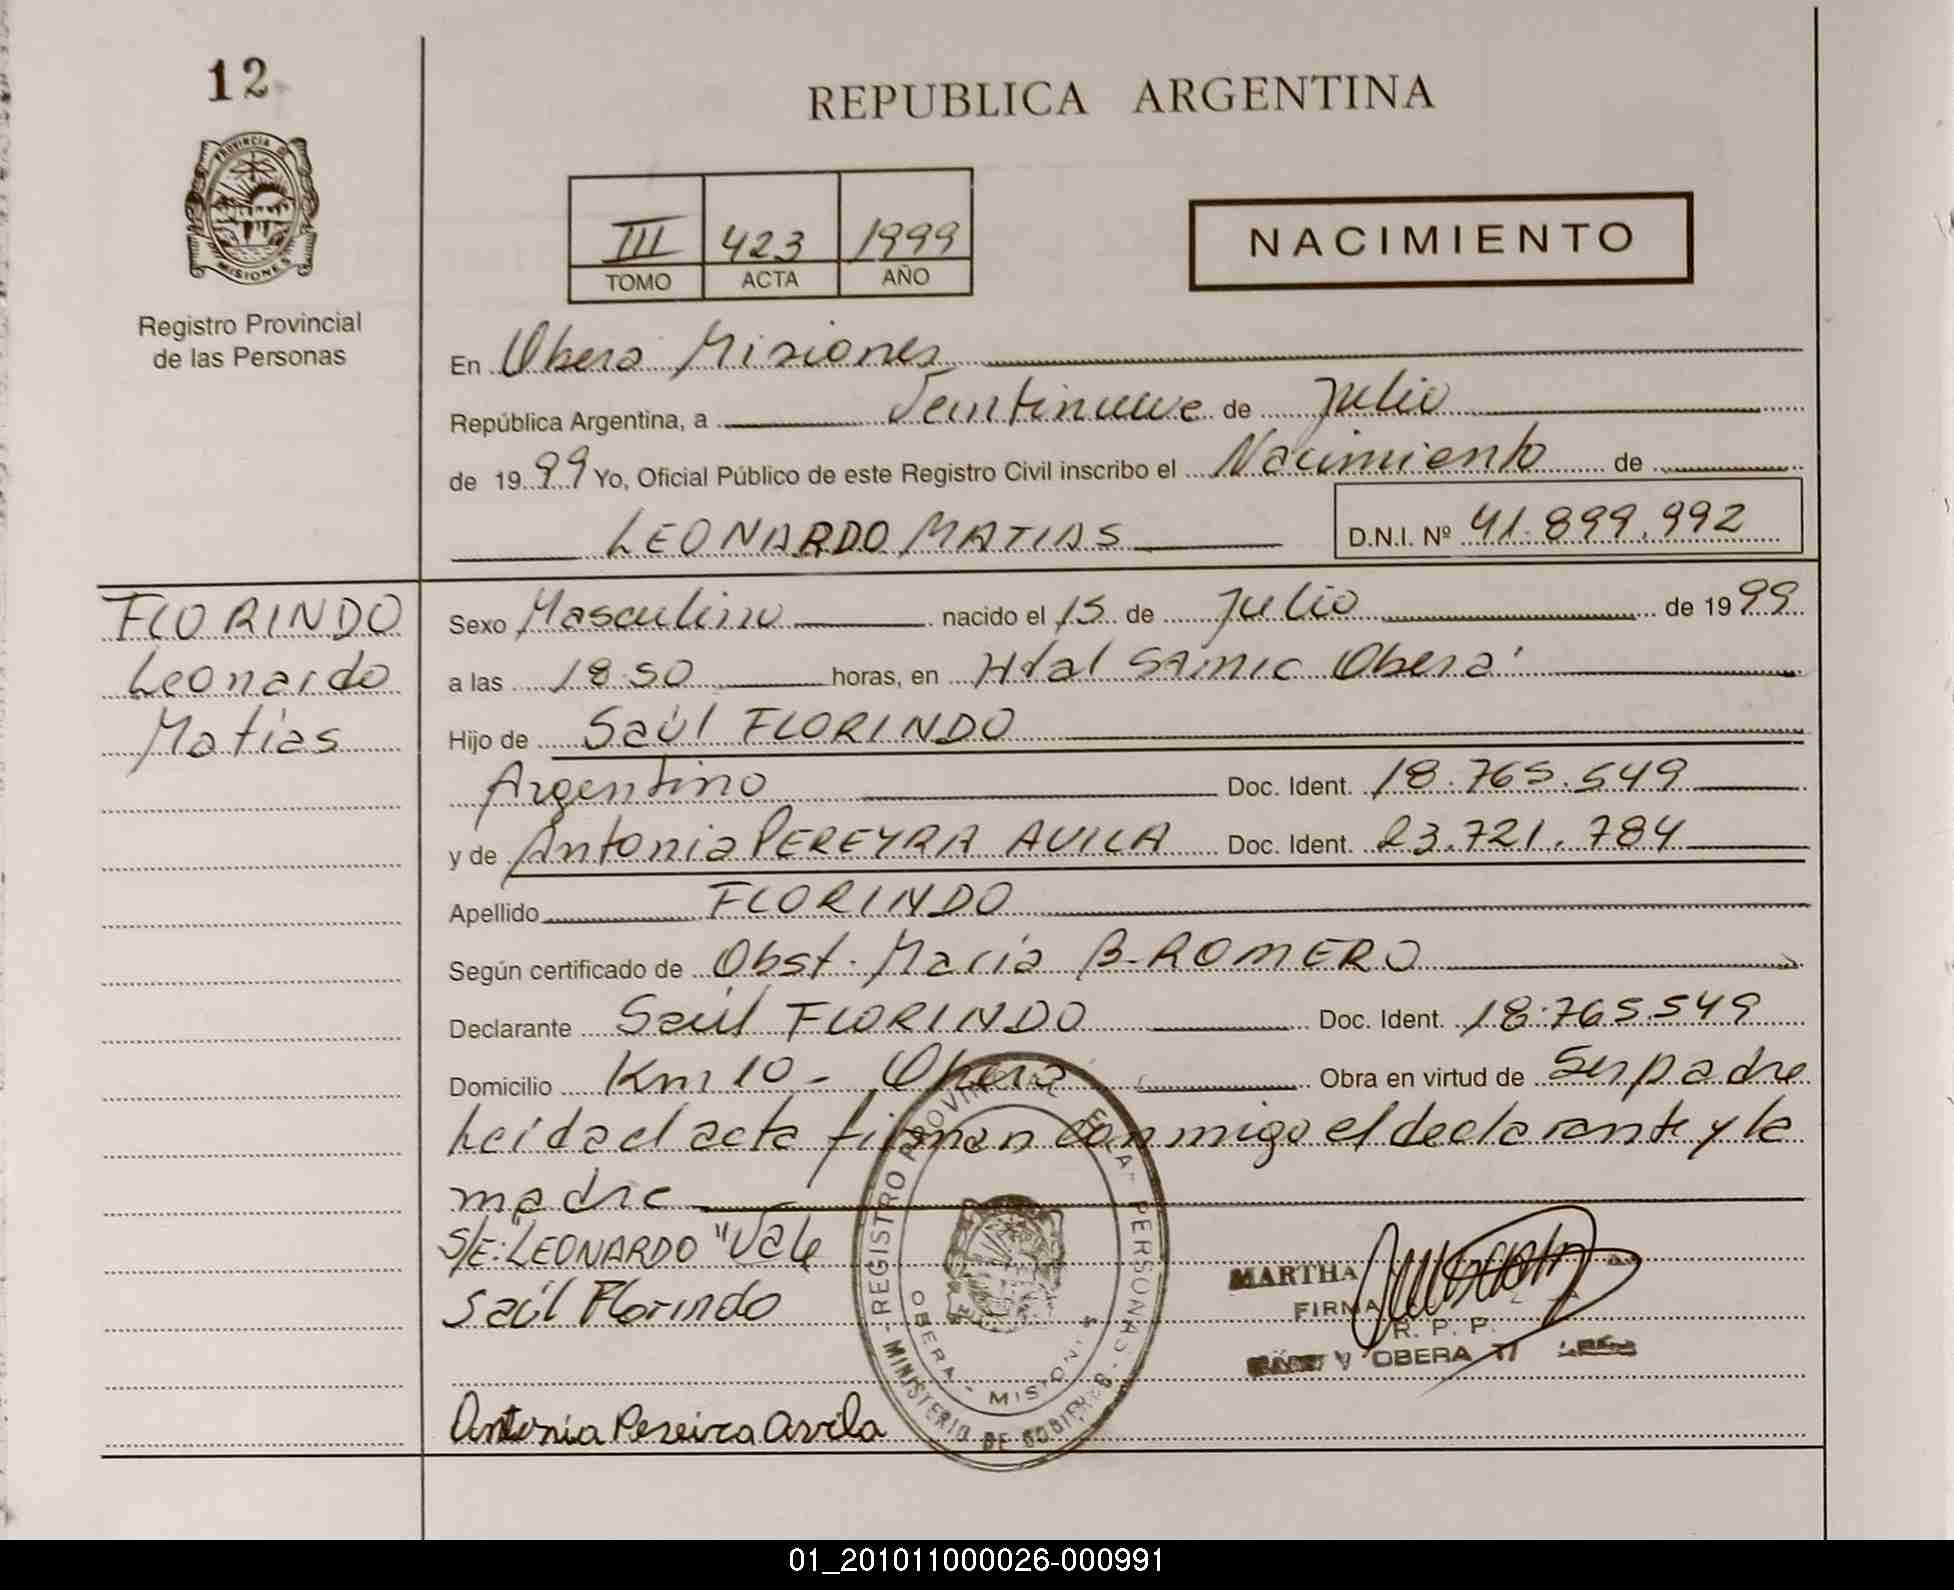 12
PROVINCIA DE
MISIONES
Registro Provincial
de las Personas
REPUBLICA ARGENTINA
III 423 1999
TOMO ACTA AÑO
NACIMIENTO
En Obera Misiones
República Argentina, a Veintinueve de Julio
de 1999 Yo, Oficial Público de este Registro Civil inscribo el Nacimiento de
LEONARDO MATIAS D.N.I. Nº 41.899.992
FLORINDO
Leonardo
Matías
Sexo Masculino nacido el 15 de Julio de 1999
a las 18:50 horas, en Htal SAMIC Oberá
Hijo de Saúl FLORINDO
Argentino Doc. Ident. 18.765.549
y de Antonia PEREYRA AVILA Doc. Ident. 23.721.784
Apellido FLORINDO
Según certificado de Obst. María B. ROMERO
Declarante Saúl FLORINDO Doc. Ident. 18.765.549
Domicilio Km 10 - Obera Obra en virtud de Ser padre
Leida el acta firman conmigo el declarante y la
madre
S/E: LEONARDO "Vale
Saúl Florindo
Antonia Pereira Avila
REGISTRO PROVINCIAL DE LAS PERSONAS
MINISTERIO DE GOBIERNO
OBERA - MISIONES
MARTHA
FIRMA
R. P. P.
OBERA
01_201011000026-000991